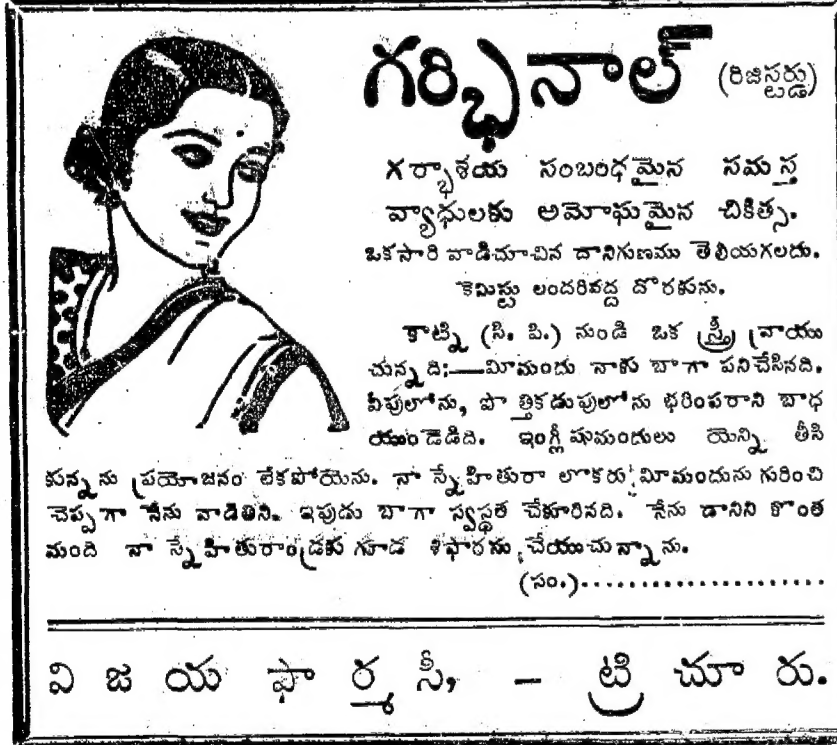 గర్భినాల్ (రిజిస్టర్డు)
గర్భాశయ సంబంధమైన సమస్త
వ్యాధులకు అమోఘమైన చికిత్స.
ఒకసారి వాడిచూచిన దానిగుణము తెలియగలదు.
కెమిస్టు లందరివద్ద దొరకును.
కాట్ని (సి. పి.) నుండి ఒక స్త్రీ వ్రాయు
చున్నది:—మీమందు నాకు బాగా పనిచేసినది.
వీపులోను, పొత్తికడుపులోను భరింపరాని బాధ
యుండెడిది. ఇంగ్లీషుమందులు యెన్ని తీసి
కున్నను ప్రయోజనం లేకపోయెను. నా స్నేహితురా లొకరు మీమందును గురించి
చెప్పగా నేను వాడితిని. ఇపుడు బాగా స్వస్థత చేకూరినది. నేను దానిని కొంత
మంది నా స్నేహితురాండ్రకు గూడ శిఫారసు చేయుచున్నాను.
(సం.)........................
విజయ ఫార్మసీ, – ట్రిచూరు.